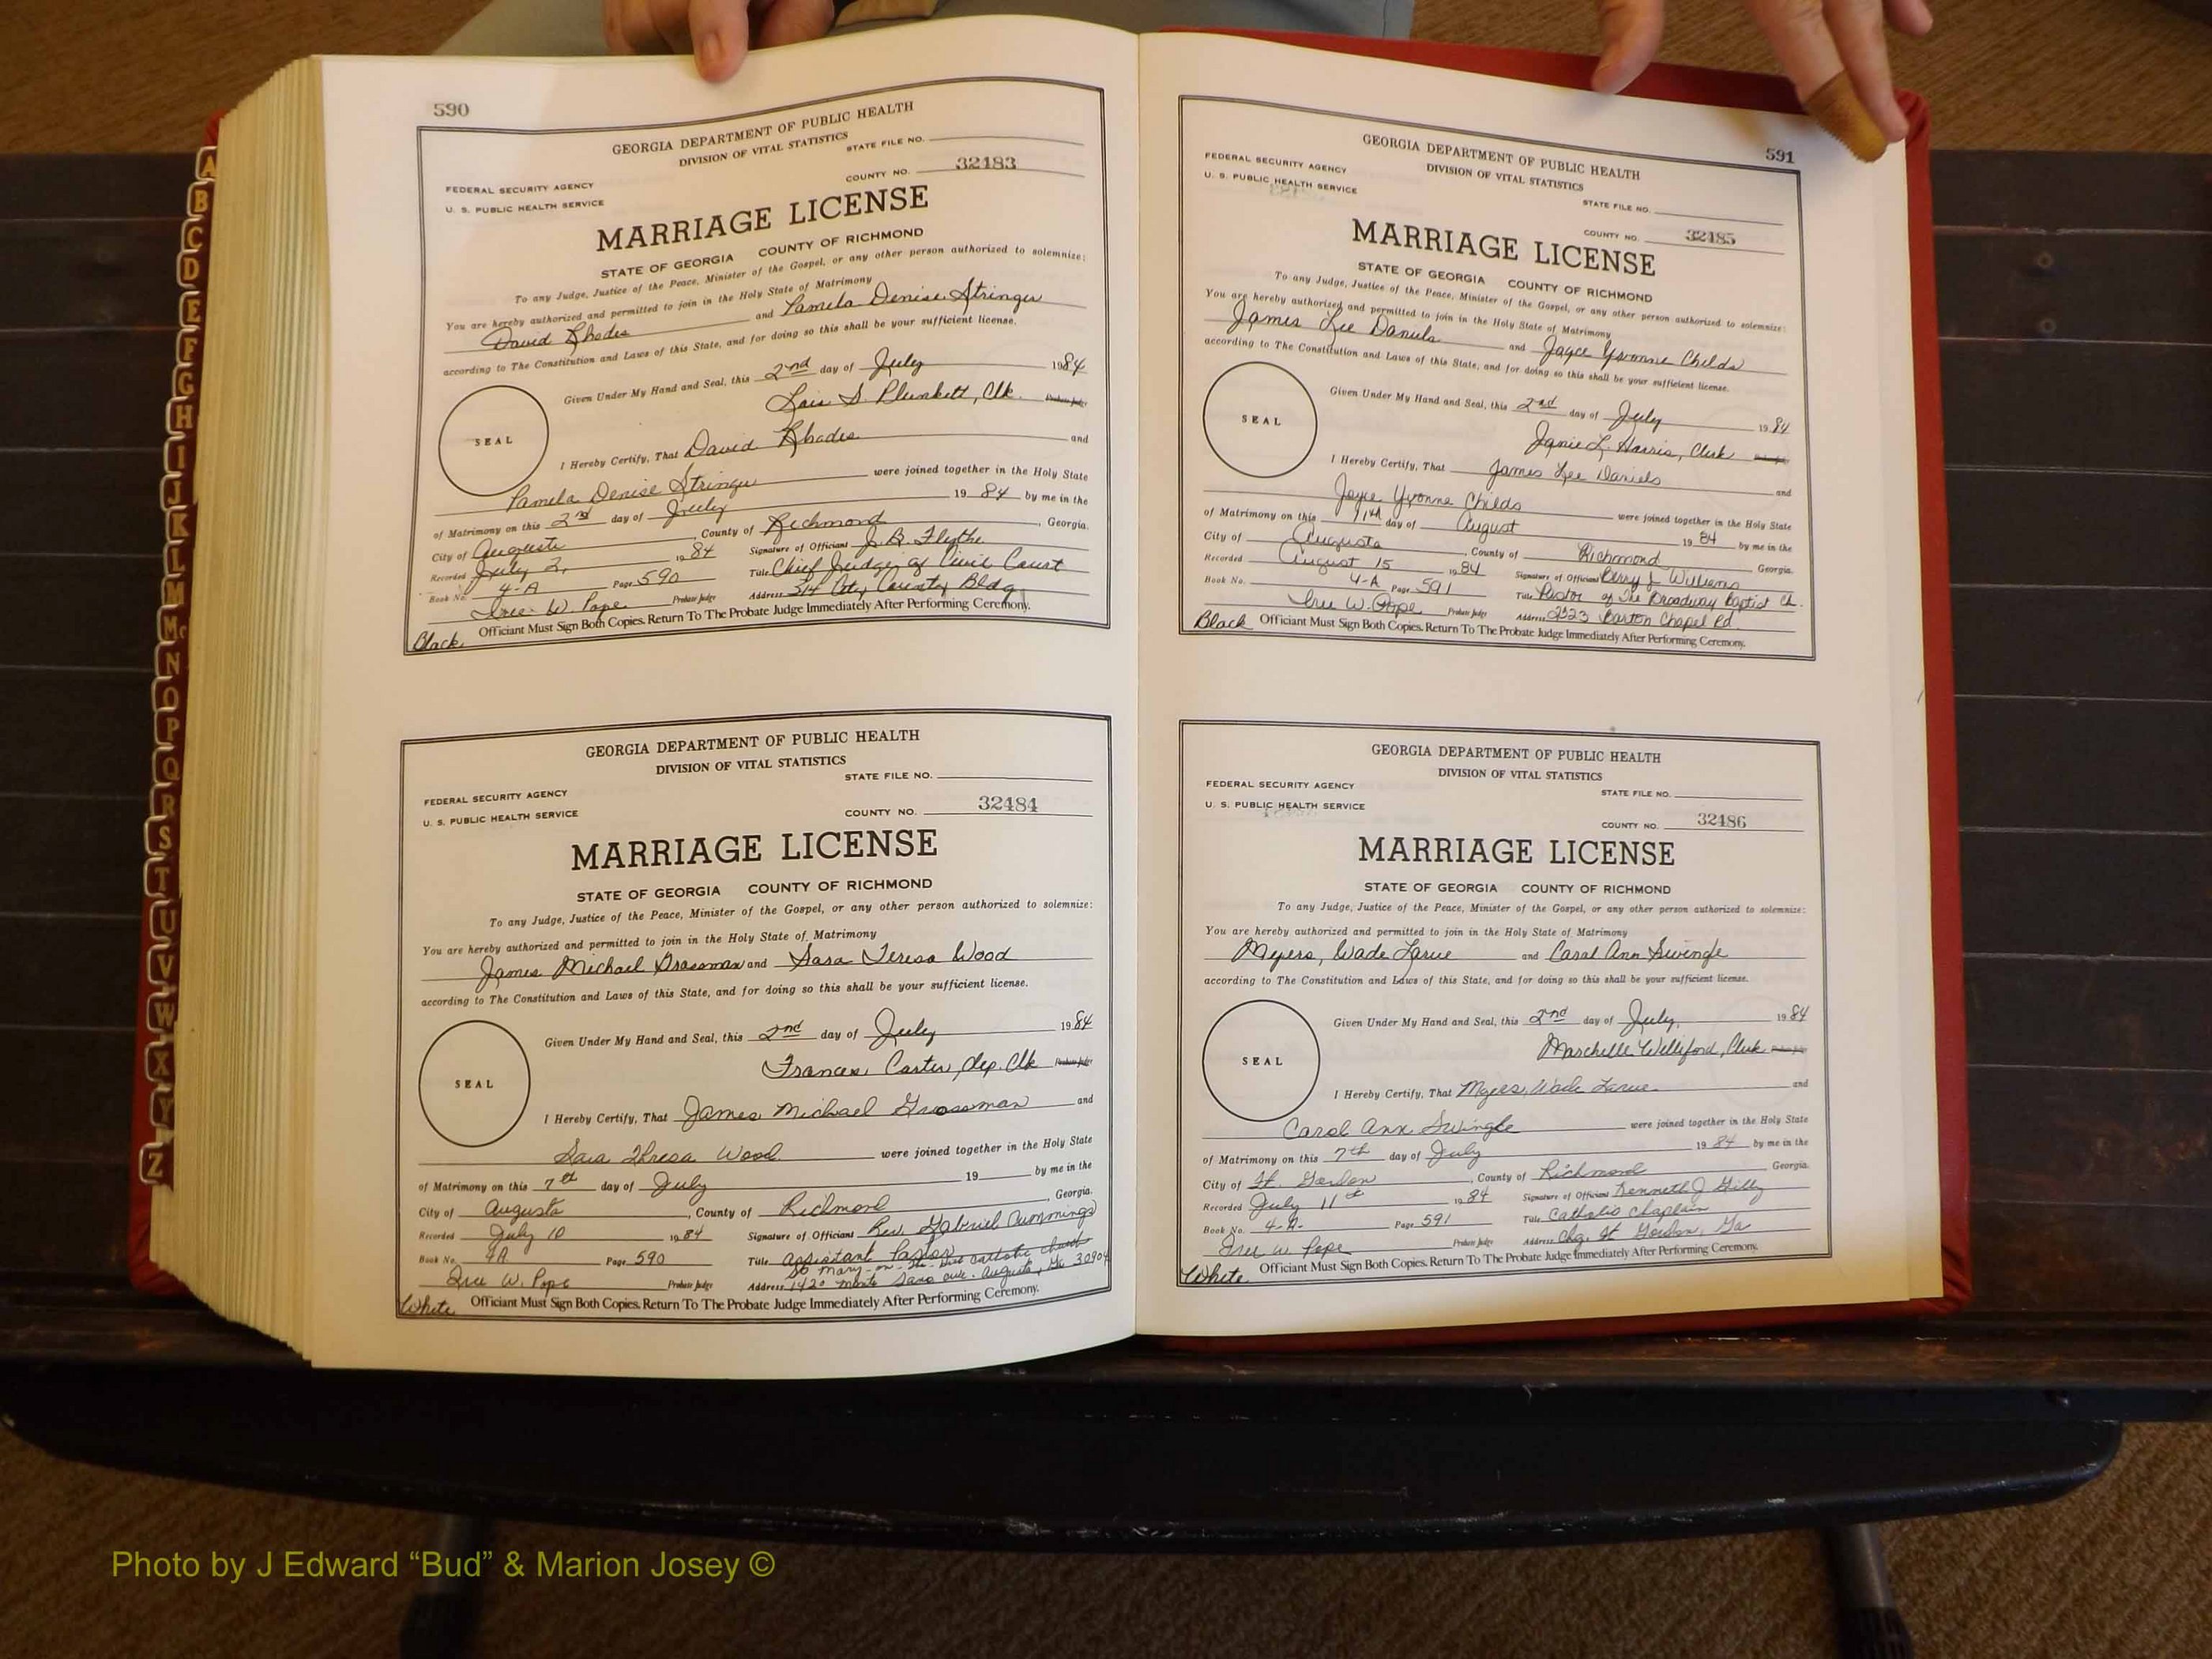 590
GEORGIA DEPARTMENT OF PUBLIC HEALTH
DIVISION OF VITAL STATISTICS
STATE FILE NO.
FEDERAL SECURITY AGENCY
U. S. PUBLIC HEALTH SERVICE
COUNTY NO. 32483
MARRIAGE LICENSE
STATE OF GEORGIA COUNTY OF RICHMOND
To any Judge, Justice of the Peace, Minister of the Gospel, or any other person authorized to solemnize:
You are hereby authorized and permitted to join in the Holy State of Matrimony
David Rhodes and Pamela Denise Stringer
according to The Constitution and Laws of this State, and for doing so this shall be your sufficient license.
Given Under My Hand and Seal, this 2nd day of July 1984
Lois S. Plunkett, Clk. Probate Judge
SEAL
I Hereby Certify, That David Rhodes and
Pamela Denise Stringer were joined together in the Holy State
of Matrimony on this 2nd day of July 19 84 by me in the
City of Augusta, County of Richmond, Georgia.
Recorded July 2, 1984 Signature of Officiant J. B. Flythe
Book No. 4-A Page 590 Title Chief Judge of Civil Court
Iree W. Pope Probate Judge Address 314 City County Bldg
Black Officiant Must Sign Both Copies. Return To The Probate Judge Immediately After Performing Ceremony.
GEORGIA DEPARTMENT OF PUBLIC HEALTH
DIVISION OF VITAL STATISTICS
STATE FILE NO.
FEDERAL SECURITY AGENCY
U. S. PUBLIC HEALTH SERVICE
COUNTY NO. 32484
MARRIAGE LICENSE
STATE OF GEORGIA COUNTY OF RICHMOND
To any Judge, Justice of the Peace, Minister of the Gospel, or any other person authorized to solemnize:
You are hereby authorized and permitted to join in the Holy State of Matrimony
James Michael Grossman and Sara Teresa Wood
according to The Constitution and Laws of this State, and for doing so this shall be your sufficient license.
Given Under My Hand and Seal, this 2nd day of July 1984
Frances Carter, Dep. Clk Probate Judge
SEAL
I Hereby Certify, That James Michael Grossman and
Sara Thresa Wood were joined together in the Holy State
of Matrimony on this 7th day of July 19 by me in the
City of Augusta, County of Richmond, Georgia.
Recorded July 10 1984 Signature of Officiant Rev. Gabriel Cummings
Book No. 4A Page 590 Title Assistant Pastor
St Mary-on-the-Hill Catholic Church
Iree W. Pope Probate Judge Address 1420 Monte Sano Ave. Augusta, Ga 30904
White Officiant Must Sign Both Copies. Return To The Probate Judge Immediately After Performing Ceremony.
591
GEORGIA DEPARTMENT OF PUBLIC HEALTH
DIVISION OF VITAL STATISTICS
FEDERAL SECURITY AGENCY
U. S. PUBLIC HEALTH SERVICE
STATE FILE NO.
COUNTY NO. 32485
MARRIAGE LICENSE
STATE OF GEORGIA COUNTY OF RICHMOND
To any Judge, Justice of the Peace, Minister of the Gospel, or any other person authorized to solemnize:
You are hereby authorized and permitted to join in the Holy State of Matrimony
James Lee Daniels and Joyce Yvonne Childs
according to The Constitution and Laws of this State, and for doing so this shall be your sufficient license.
Given Under My Hand and Seal, this 2nd day of July 1984
Janie L. Harris, Clerk Probate Judge
SEAL
I Hereby Certify, That James Lee Daniels and
Joyce Yvonne Childs were joined together in the Holy State
of Matrimony on this 11th day of August 19 84 by me in the
City of Augusta, County of Richmond Georgia.
Recorded August 15 1984 Signature of Officiant Berry J Williams
Book No. 4-A Page 591 Title Pastor of The Broadway Baptist Ch.
Iree W. Pope Probate Judge Address 2323 Barton Chapel Rd.
Black Officiant Must Sign Both Copies. Return To The Probate Judge Immediately After Performing Ceremony.
GEORGIA DEPARTMENT OF PUBLIC HEALTH
DIVISION OF VITAL STATISTICS
FEDERAL SECURITY AGENCY
U. S. PUBLIC HEALTH SERVICE
STATE FILE NO.
COUNTY NO. 32486
MARRIAGE LICENSE
STATE OF GEORGIA COUNTY OF RICHMOND
To any Judge, Justice of the Peace, Minister of the Gospel, or any other person authorized to solemnize:
You are hereby authorized and permitted to join in the Holy State of Matrimony
Myers, Wade Larue and Carol Ann Swingle
according to The Constitution and Laws of this State, and for doing so this shall be your sufficient license.
Given Under My Hand and Seal, this 2nd day of July, 1984
Marchelle Welliford, Clerk Probate Judge
SEAL
I Hereby Certify, That Myers, Wade Larue and
Carol Ann Swingle were joined together in the Holy State
of Matrimony on this 7th day of July 19 84 by me in the
City of Ft. Gordon, County of Richmond Georgia.
Recorded July 11th 1984 Signature of Officiant Kenneth J
Book No. 4-A Page 591 Title Catholic Chaplain
Iree W. Pope Probate Judge Address Chq. Ft Gordon, Ga
White Officiant Must Sign Both Copies. Return To The Probate Judge Immediately After Performing Ceremony.
A
B
C
D
E
F
G
H
I
J
K
L
M
Mc
N
O
P
Q
R
S
T
U
V
W
X
Y
Z
Photo by J Edward “Bud” & Marion Josey ©